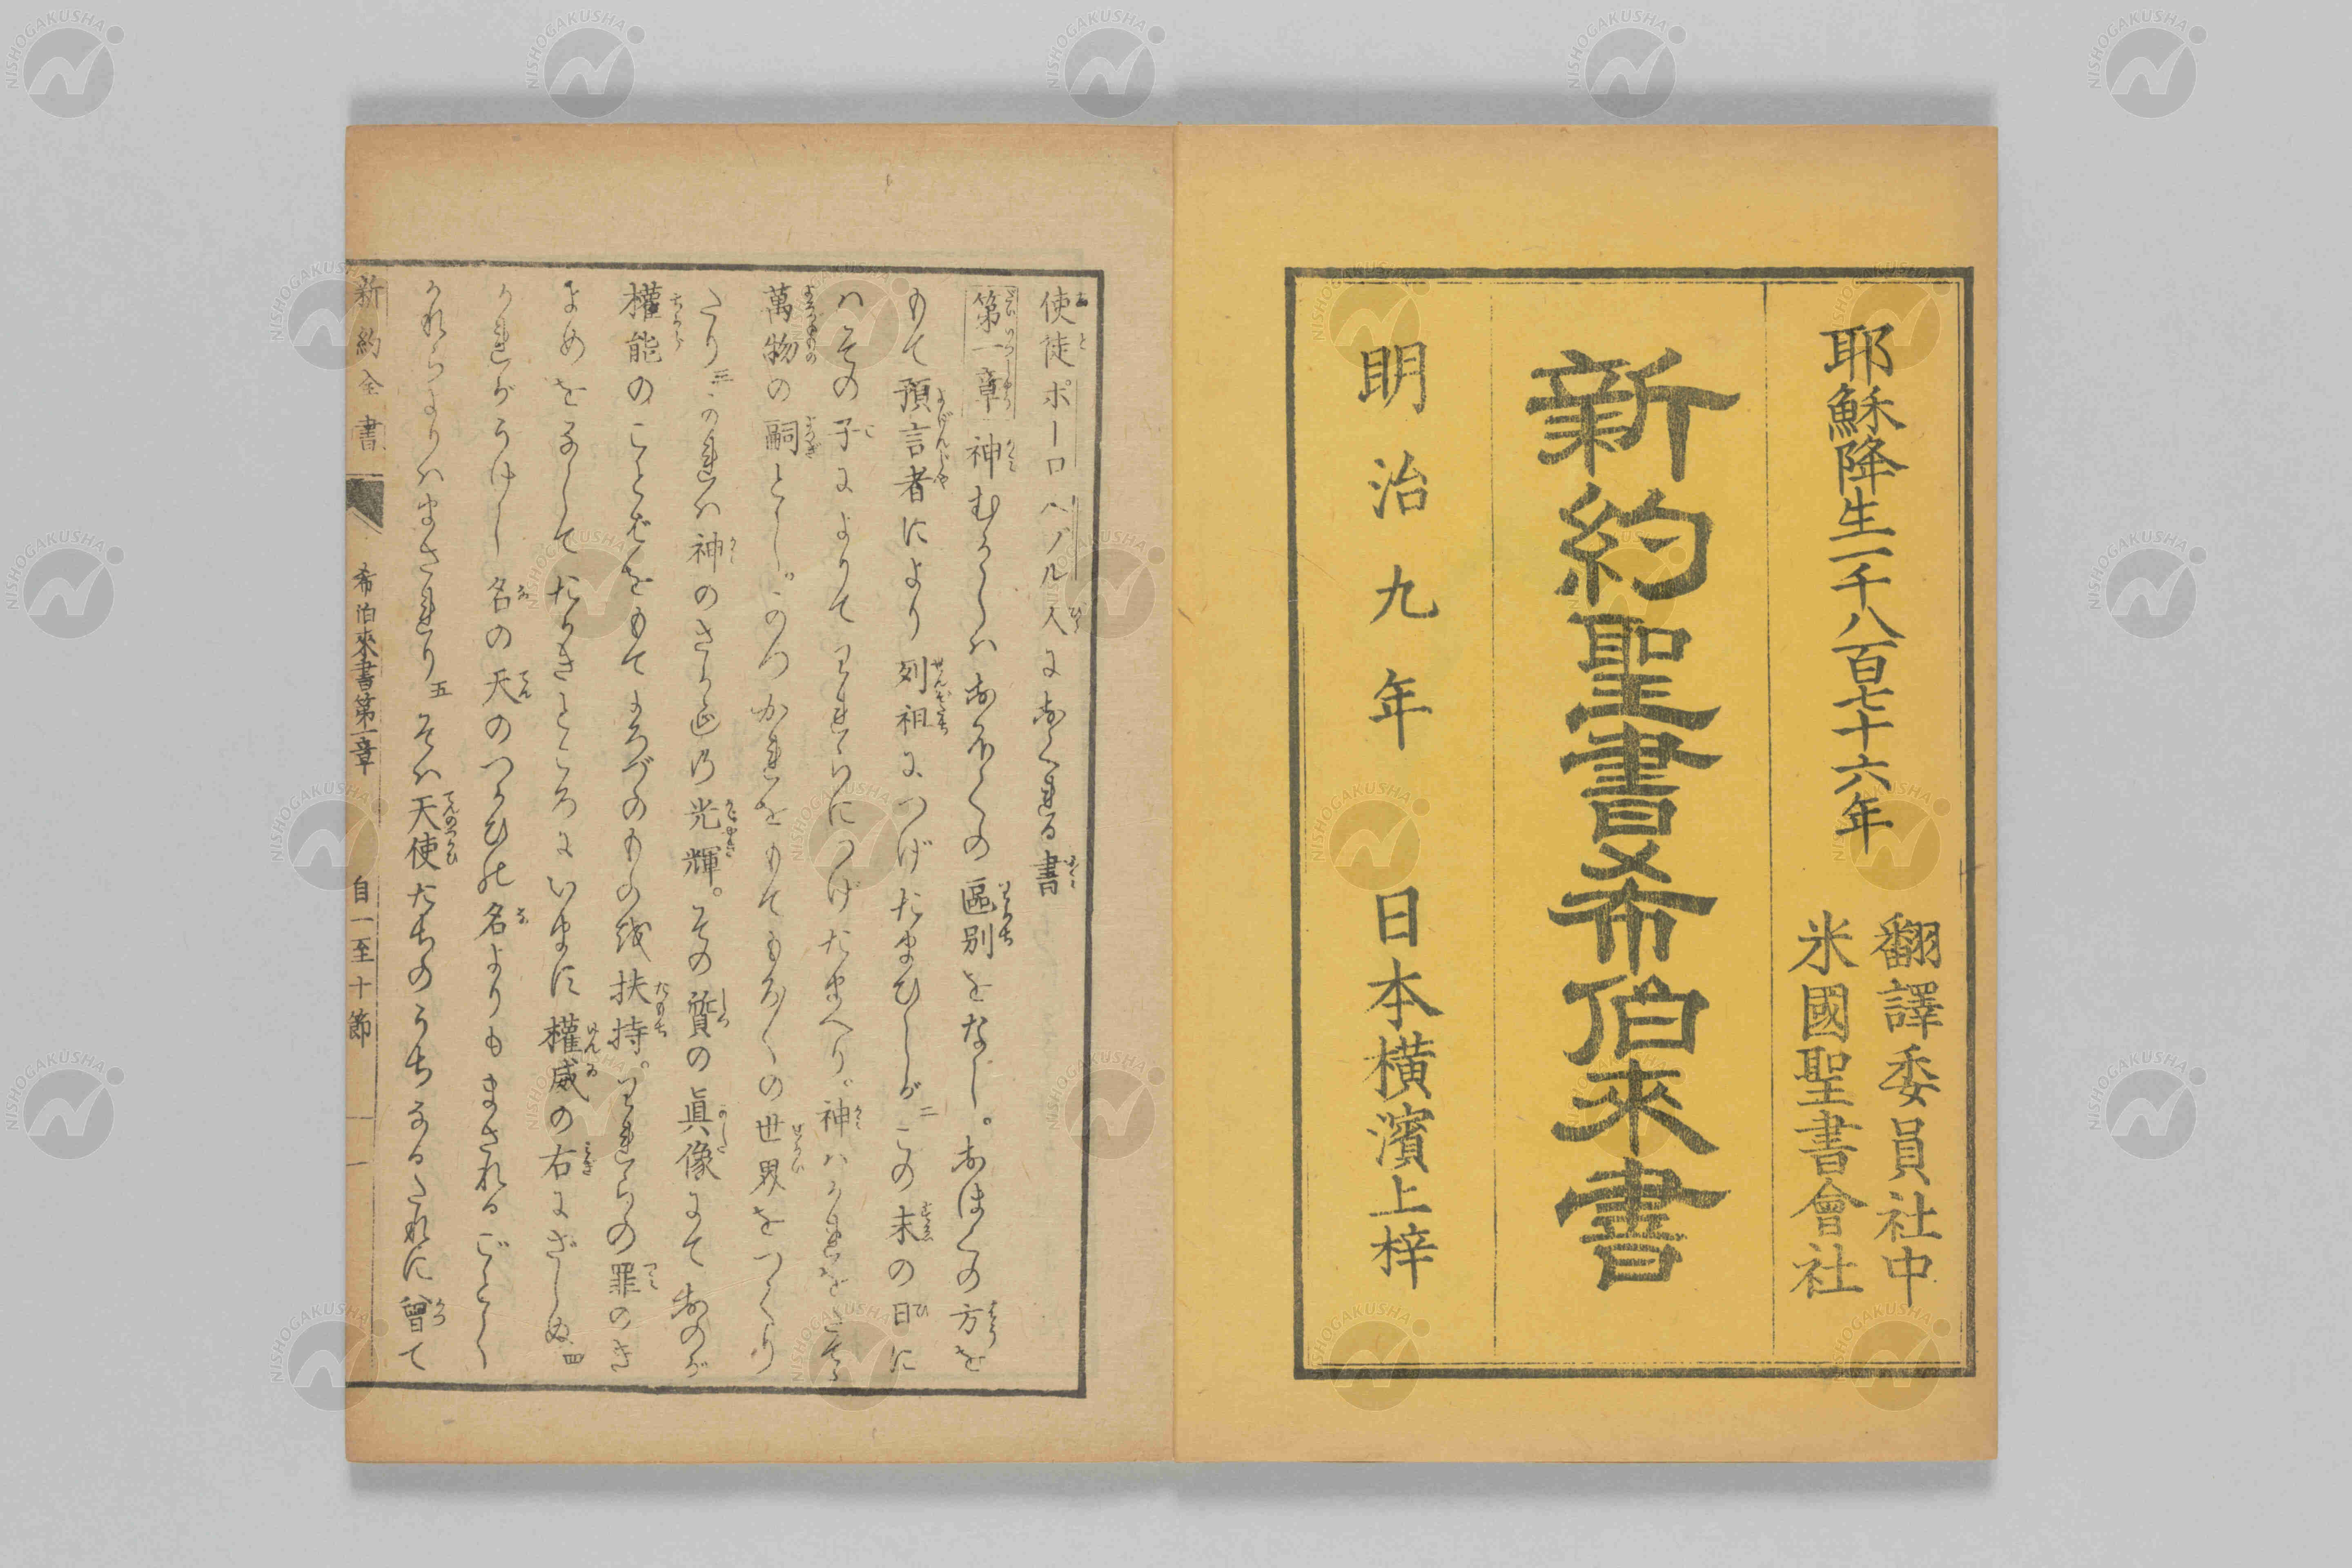 耶穌降生一千八百七十六年
翻譯委員社中
米國聖書會社
新約聖書希伯來書
明治九年 日本横濱上梓
使徒ポーロヘブル人におくれる書
第一章 神むかしハおほくの區別をなし。おほくの方を
もて預言者により列祖につげたまひしが二この末の日に
ハその子によりてわれらにつげたまへり。神ハかれをたてゝ
萬物の嗣とし。かつかれをもてもろ〳〵の世界をつくり
たり三かれハ神のさかえの光輝。その質の眞像にておのが
權能のことばをもてよろづのものを扶持。われらの罪のき
よめをなしてたかきところにいまに權威の右にざしぬ四
かれがうけし名の天のつかひの名よりもまされるごとく
かれらよりハまされり五そハ天使たちのうちなるたれに曾て
新約全書 希伯來書第一章 自一至十節 一
NISHOGAKUSHA